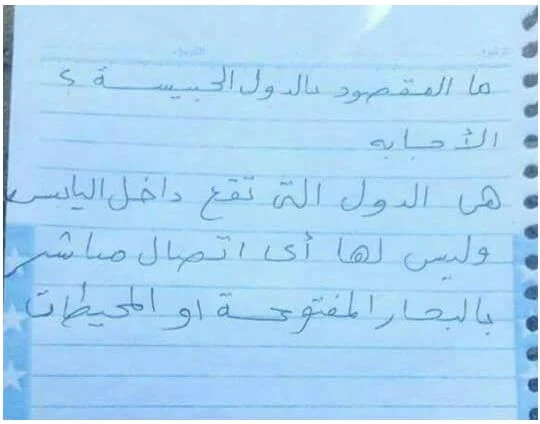 ما المقصود بالدول الحبيسة ؟
الأجابه
هى الدول التى تقع داخل اليابس
وليس لها أى اتصال مباشر
بالبحار المفتوحة او المحيطات